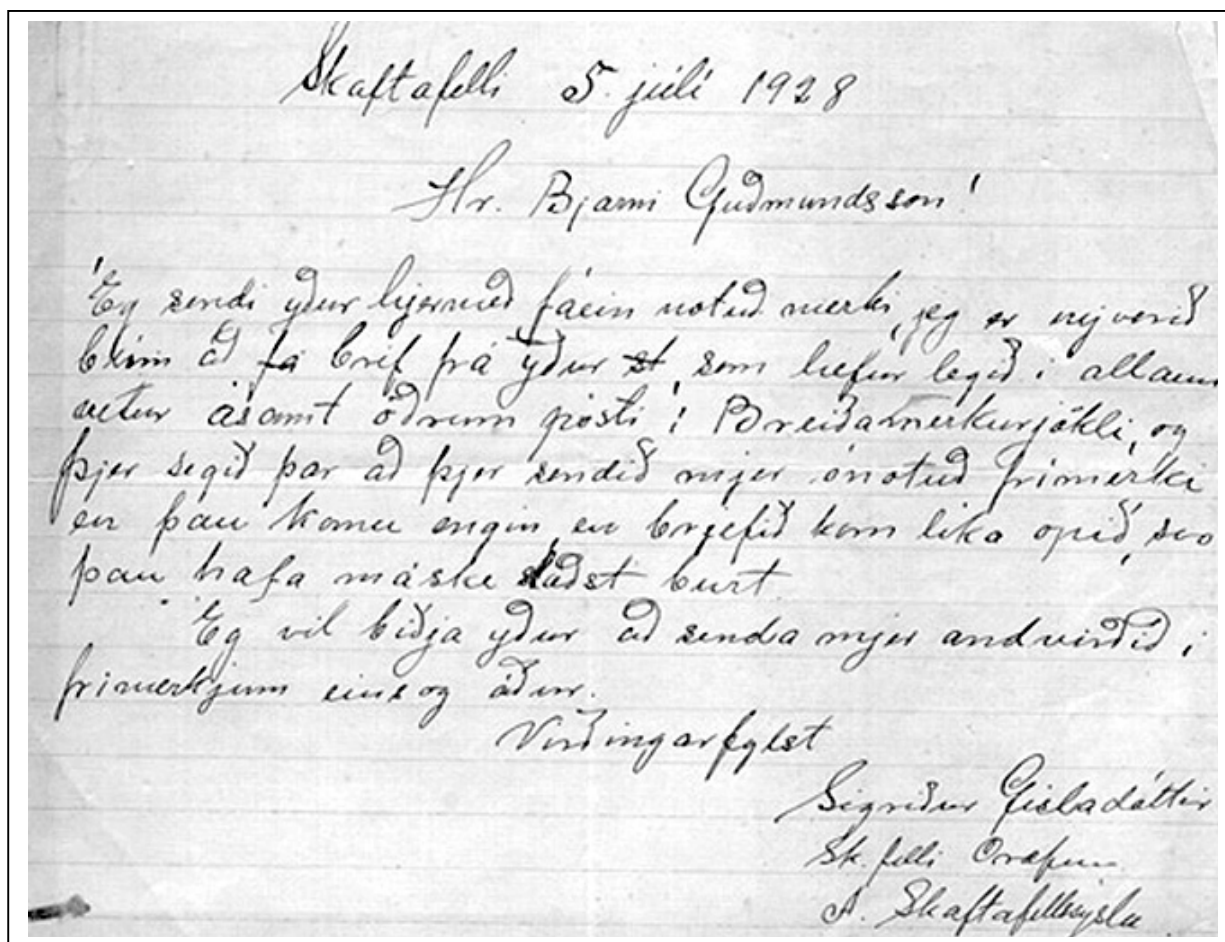 Skaftafelli 5. júlí 1928
Hr. Bjarni Guðmundsson!
Eg sendi yður hjermeð fáein notuð merki, jeg er nývorið
búin að fá bréf frá yður st, som hefur legið í allann
vetur ásamt öðrum pósti í Breiðamerkurjökli, og
þjer segið þar að þjer sendið mjer ónotuð frímerki
en þau komu engin en brjefið kom lika opið, svo
þau hafa máske máðst burt.
Eg vil biðja yður að senda mjer andvirðið í
frímerkjum eins og áður.
Virðingarfylst
Sigríður Gísladóttir
Sk.felli Oræfum
A. Skaftafellssýslu